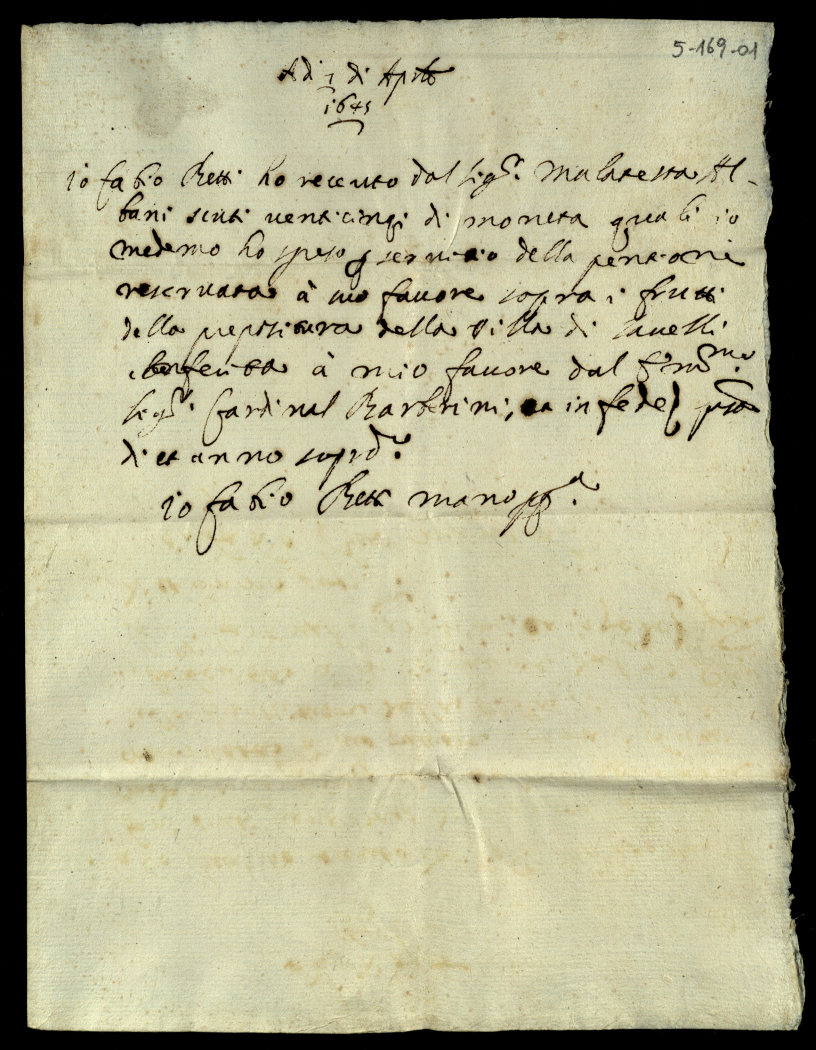 5-169-01
Adi 1 di Aprile
1645
io fabio Retti ho receuto dal sig.r Malatesta Al-
bani scuti venticinqi di moneta quali io
medemo ho speso p servitio della pensione
reservata à mio favore sopra i frutti
della prepositura della Villa di Savelli
conferita à mio favore dal E'm.mo
sig.r Cardinal Barberini, et in fede q.to
di et anno sopr.d.o
io fabio Retti mano pp.a